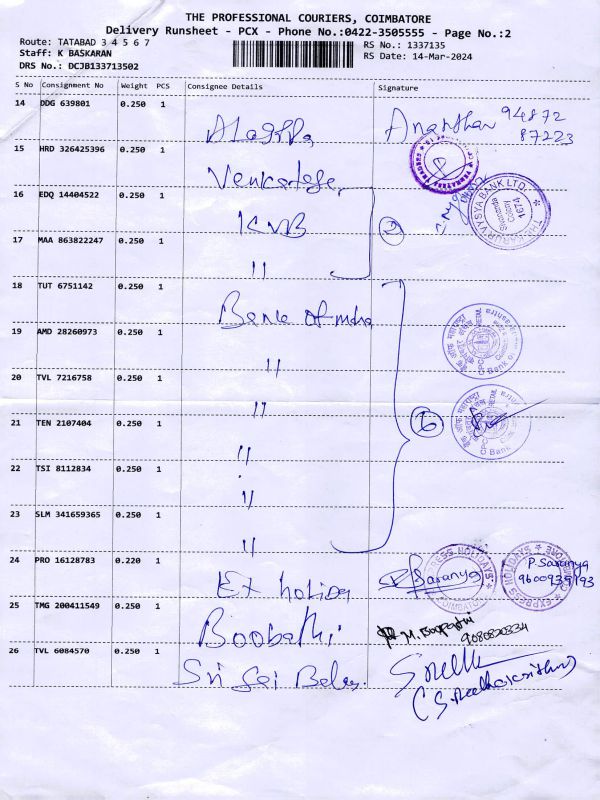 THE PROFESSIONAL COURIERS, COIMBATORE
Delivery Runsheet - PCX - Phone No.:0422-3505555 - Page No.:2
Route: TATABAD 3 4 5 6 7
Staff: K BASKARAN
DRS No.: DCJB133713502
RS No.: 1337135
RS Date: 14-Mar-2024
S No Consignment No Weight PCS Consignee Details Signature
14 DDG 639801 0.250 1 94872
87223
15 HRD 326425396 0.250 1
16 EDQ 14404522 0.250 1 KVB
THE KARUR VYSYA BANK LTD.
1674
17 MAA 863822247 0.250 1 "
2
18 TUT 6751142 0.250 1 Bank of India
19 AMD 28260973 0.250 1 "
20 TVL 7216758 0.250 1 "
21 TEN 2107404 0.250 1 "
6
22 TSI 8112834 0.250 1 "
23 SLM 341659365 0.250 1 "
24 PRO 16128783 0.220 1 Saranya
EXPRESS HOLIDAYS
COIMBATORE
P. Saranya
9600939193
25 TMG 200411549 0.250 1 Boobathi M. Boopathi
9080820334
26 TVL 6084570 0.250 1 Sri Sai